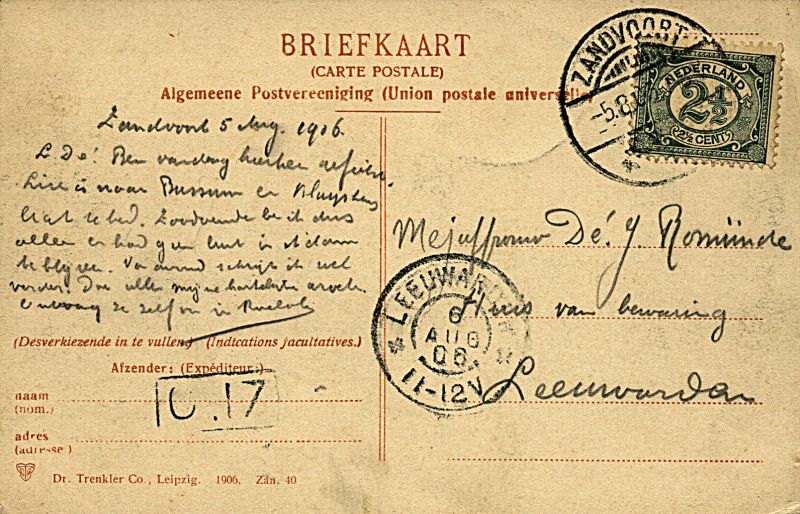 BRIEFKAART
(CARTE POSTALE)
Algemeene Postvereeniging (Union postale universelle)
ZANDVOORT
5.8
NEDERLAND
2½
2½ CENT
Zandvoort 5 Aug. 1906.
L. Dé! Ben vandaag hierheen gefietst.
Lize is naar Bussum en Kluyskens
ligt te bed. Zoodoende ben ik dus
alleen en had geen lust in A'dam
te blijven. Van avond schrijf ik wel
verder. Doe allen mijne hartelijke groeten
Ontvang ze zelf van je Roelof
Mejuffrouw Dé. J. Romijnde
Huis van bewaring
Leeuwarden
LEEUWARDEN
6
AUG
06
11-12V
(Desverkiezende in te vullen) (Indications facultatives.)
Afzender: (Expéditeur:)
naam
(nom.)
U.17
adres
(adresse)
Dr. Trenkler Co., Leipzig. 1906. Zan. 40